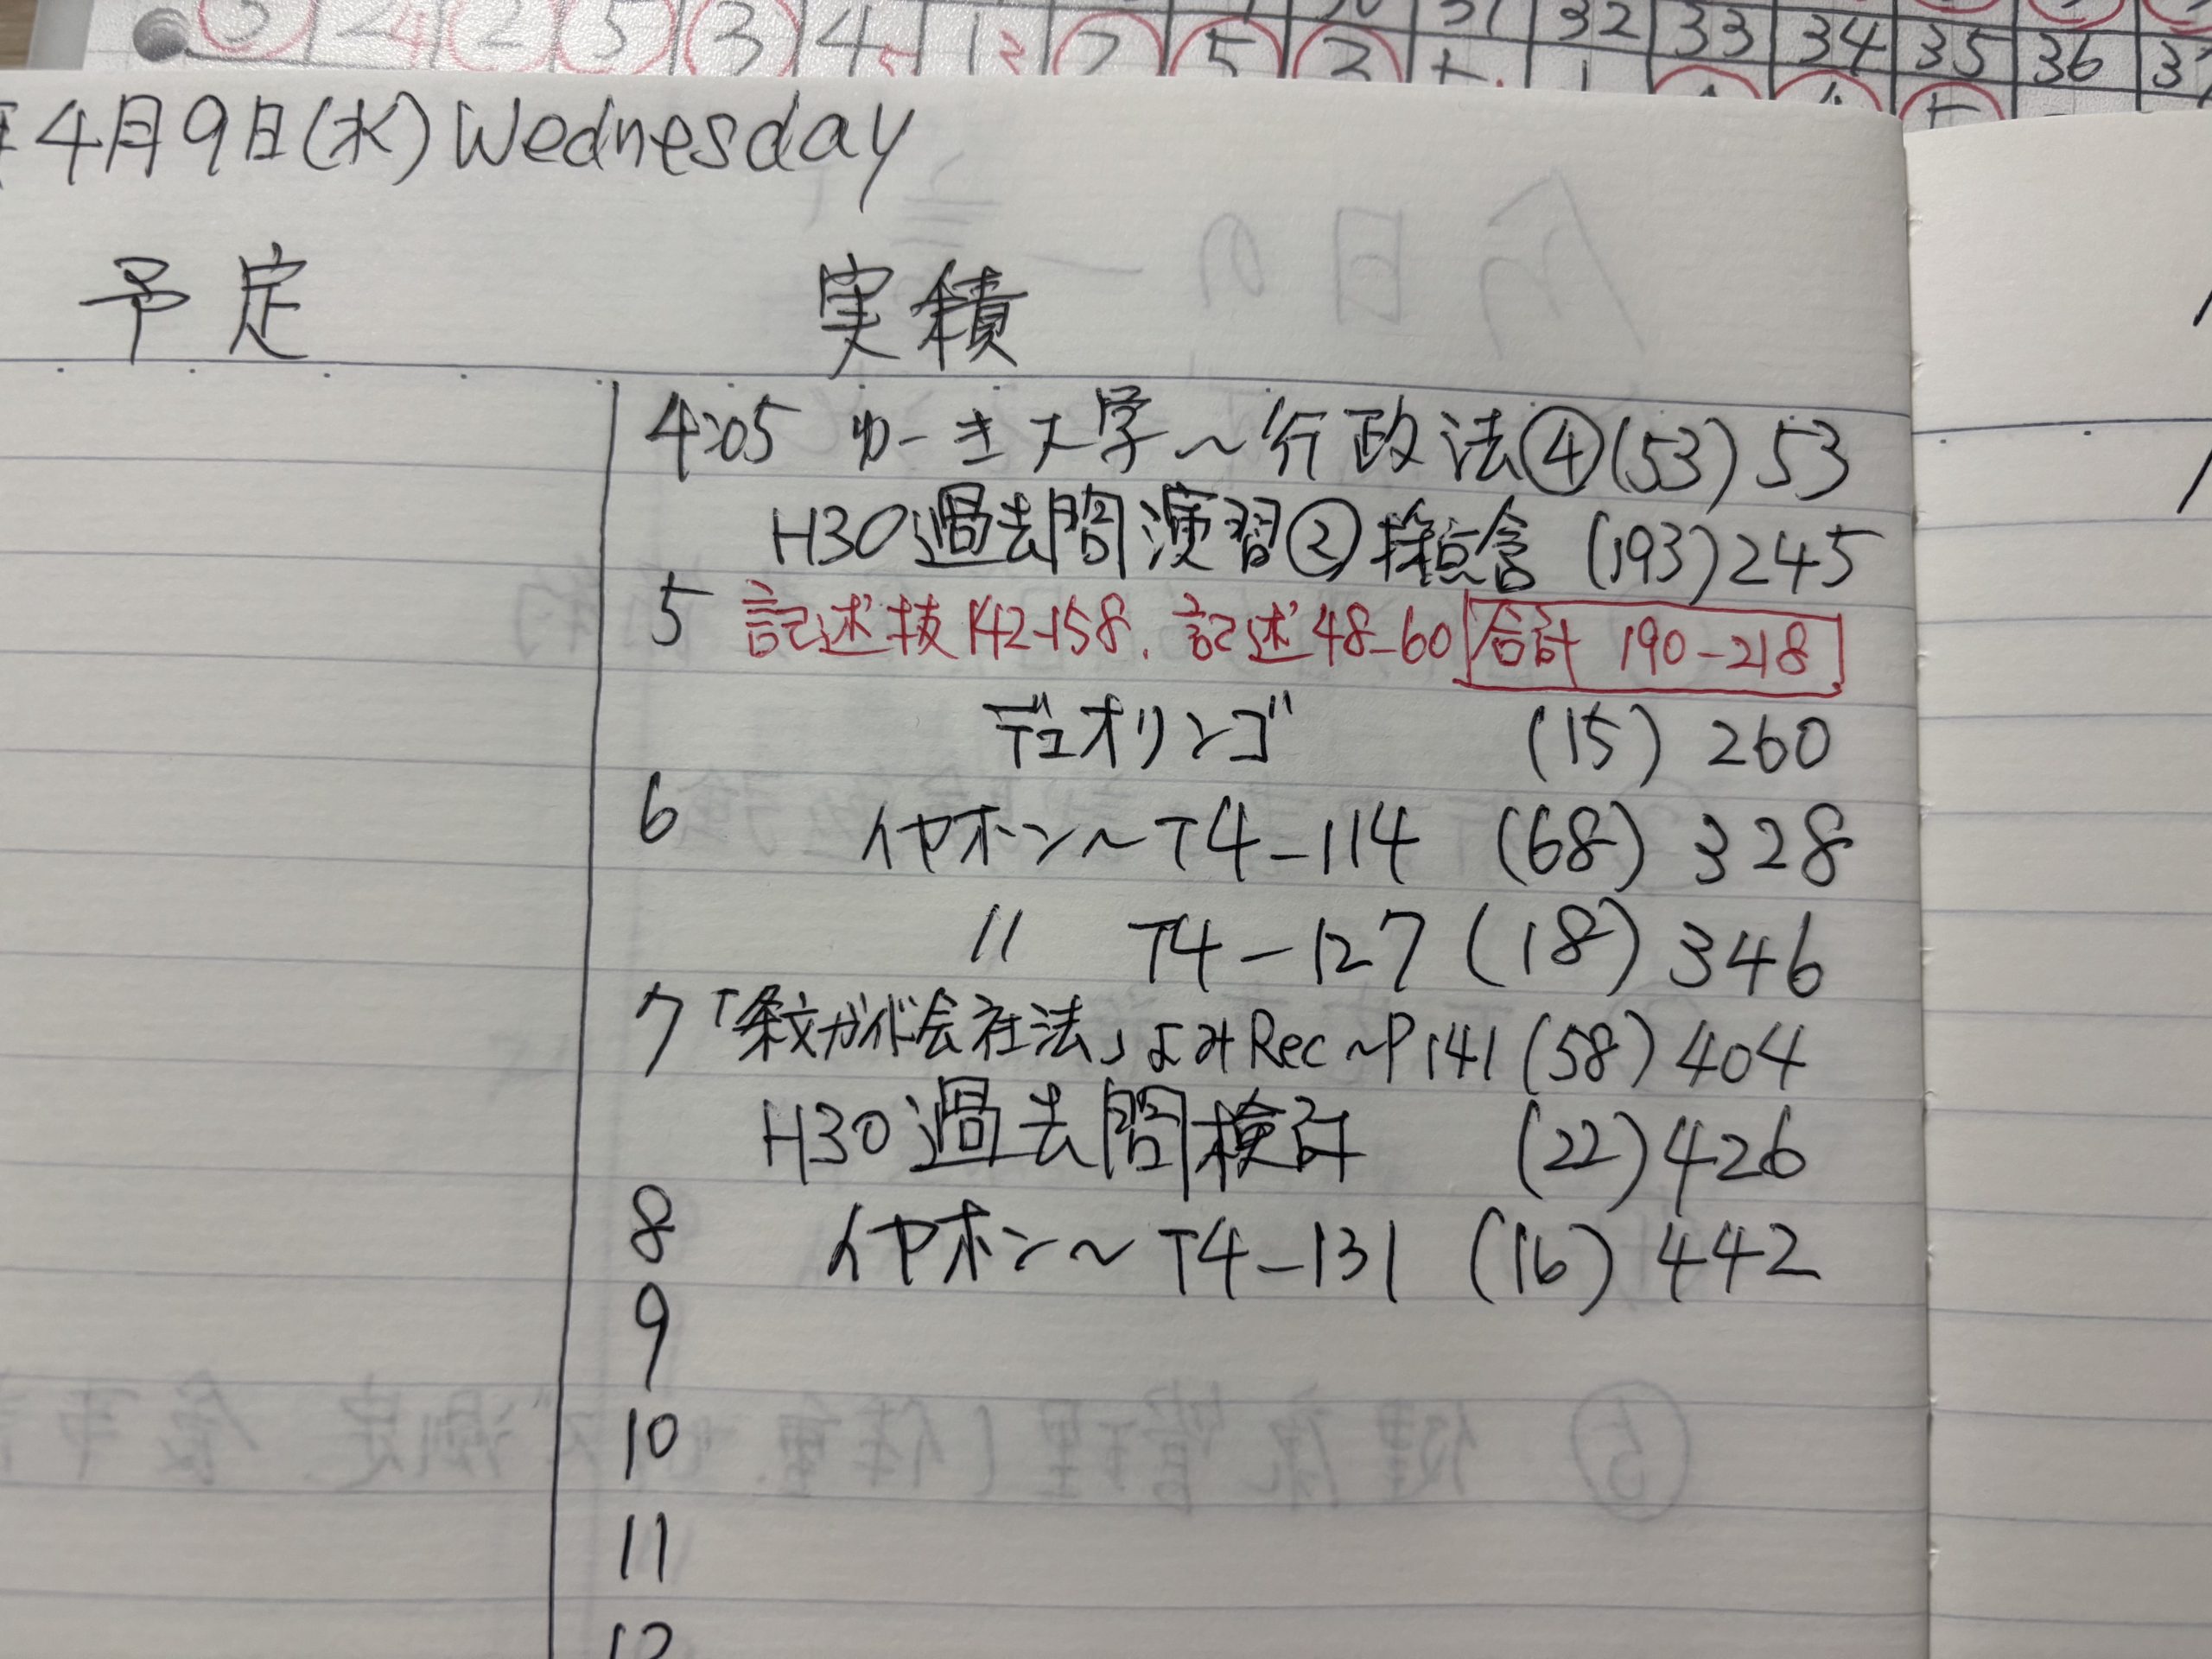 4月9日(水) Wednesday
予定 実績
4:05 ゆーき大学～行政法④(53) 53
H30過去問演習②採点含 (193) 245
5 記述抜142-158. 記述48-60 合計 190-218
デュオリンゴ (15) 260
6 イヤホン～T4-114 (68) 328
〃 T4-127 (18) 346
7 「条文ガイド会社法」よみRec～P141 (58) 404
H30過去問検討 (22) 426
8 イヤホン～T4-131 (16) 442
9
10
11
12